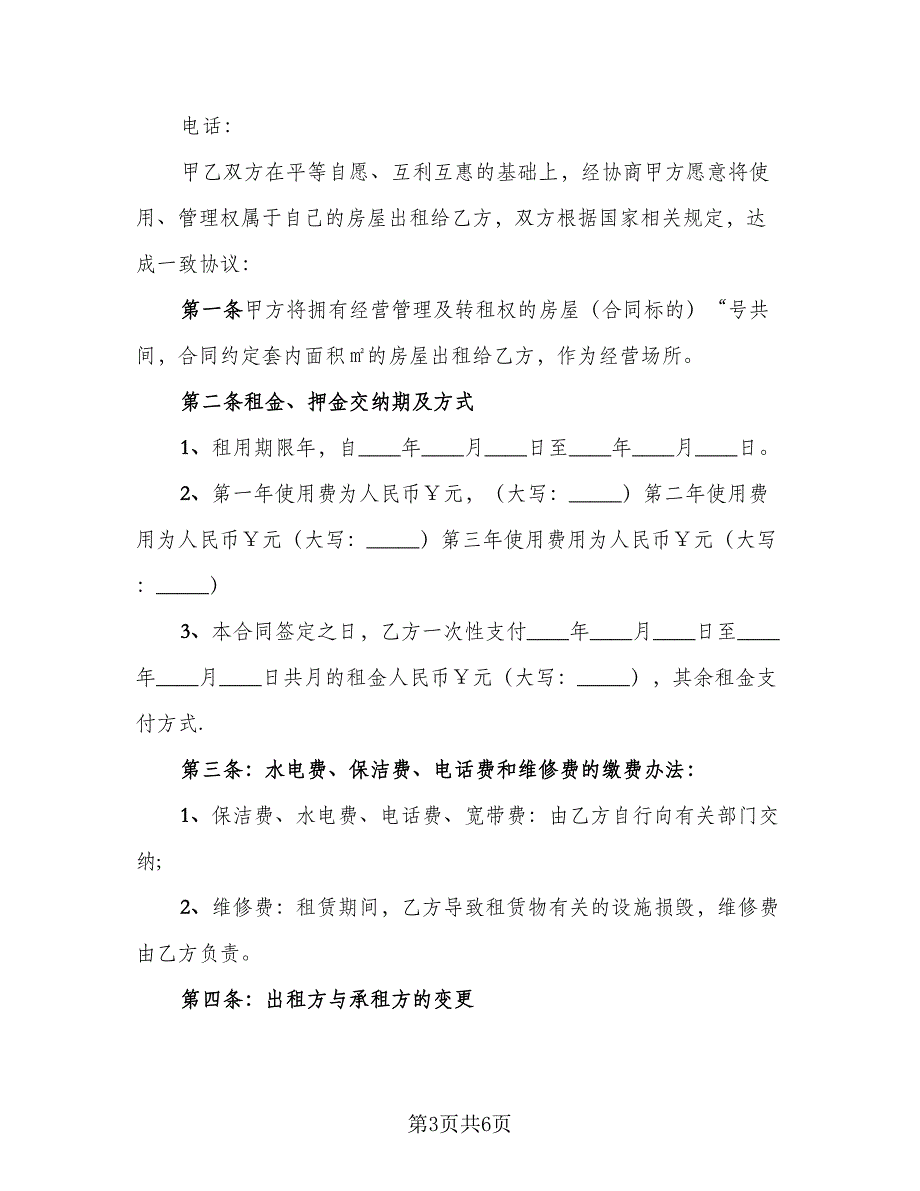 电话：
甲乙双方在平等自愿、互利互惠的基础上，经协商甲方愿意将使
用、管理权属于自己的房屋出租给乙方，双方根据国家相关规定，达
成一致协议：
第一条甲方将拥有经营管理及转租权的房屋（合同标的）“号共
间，合同约定套内面积㎡的房屋出租给乙方，作为经营场所。
第二条租金、押金交纳期及方式
1、租用期限年，自____年____月____日至____年____月____日。
2、第一年使用费为人民币￥元，（大写：_____）第二年使用费
用为人民币￥元（大写：_____）第三年使用费用为人民币￥元（大写
：_____）
3、本合同签定之日，乙方一次性支付____年____月____日至____
年____月____日共月的租金人民币￥元（大写：_____），其余租金支
付方式.
第三条：水电费、保洁费、电话费和维修费的缴费办法：
1、保洁费、水电费、电话费、宽带费：由乙方自行向有关部门交
纳;
2、维修费：租赁期间，乙方导致租赁物有关的设施损毁，维修费
由乙方负责。
第四条：出租方与承租方的变更
第3页共6页